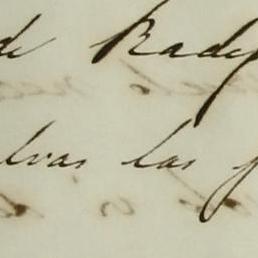 de Rade
lvas las f